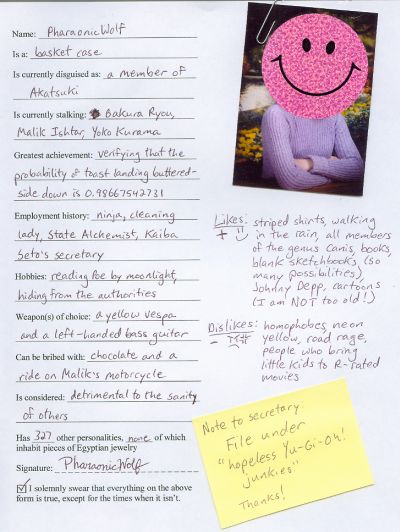 Name: PharaonicWolf
Is a: basket case
Is currently disguised as: a member of
Akatsuki
Is currently stalking: Bakura Ryou,
Malik Ishtar, Yoko Kurama
Greatest achievement: verifying that the
probability of toast landing buttered-
side down is 0.98667542731
Employment history: ninja, cleaning
lady, State Alchemist, Kaiba
Seto's secretary
Hobbies: reading Poe by moonlight,
hiding from the authorities
Weapon(s) of choice: a yellow vespa
and a left-handed bass guitar
Can be bribed with: chocolate and a
ride on Malik's motorcycle
Is considered: detrimental to the sanity
of others
Has 327 other personalities, none of which
inhabit pieces of Egyptian jewelry
Signature: PharaonicWolf
I solemnly swear that everything on the above
form is true, except for the times when it isn't.
Likes: striped shirts, walking
in the rain, all members
of the genus Canis, books,
blank sketchbooks, (so
many possibilities),
Johnny Depp, cartoons
(I am NOT too old!)
Dislikes: homophobes, neon
yellow, road rage,
people who bring
little kids to R-rated
movies
Note to secretary:
File under
"hopeless Yu-Gi-Oh!
junkies"
Thanks!